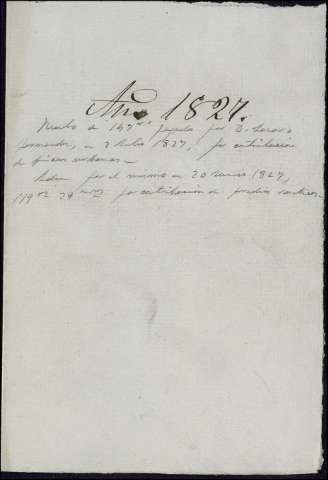 Año 1827.
Recibo de 147 rs pagados por D.
Fernandez, en 2 Julio 1827, por contribución
de fincas urbanas.
Idem por el mismo en 20 1827,
119 rs 29 mrs por contribución de predios rústicos.